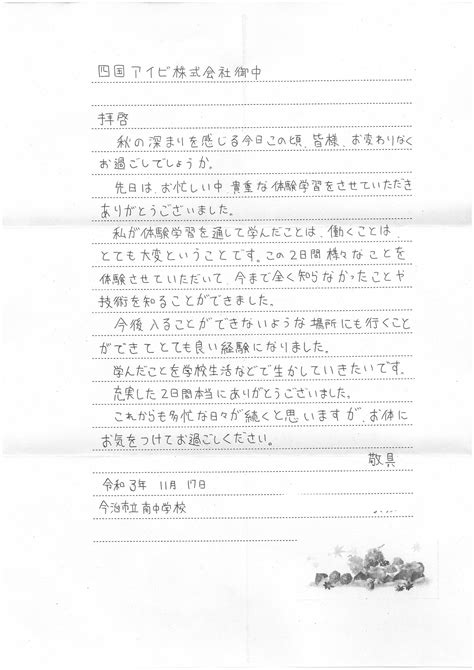 四国アイビ株式会社御中
拝啓
秋の深まりを感じる今日この頃、皆様、お変わりなく
お過ごしでしょうか。
先日は、お忙しい中、貴重な体験学習をさせていただき
ありがとうございました。
私が体験学習を通して学んだことは、働くことは、
とても大変ということです。この2日間様々なことを
体験させていただいて、今まで全く知らなかったことや
技術を知ることができました。
今後入ることができないような場所にも行くこと
ができてとても良い経験になりました。
学んだことを学校生活などで生かしていきたいです。
充実した2日間本当にありがとうございました。
これからも多忙な日々が続くと思いますが、お体に
お気をつけてお過ごしください。
敬具
令和3年 11月 17日
今治市立南中学校